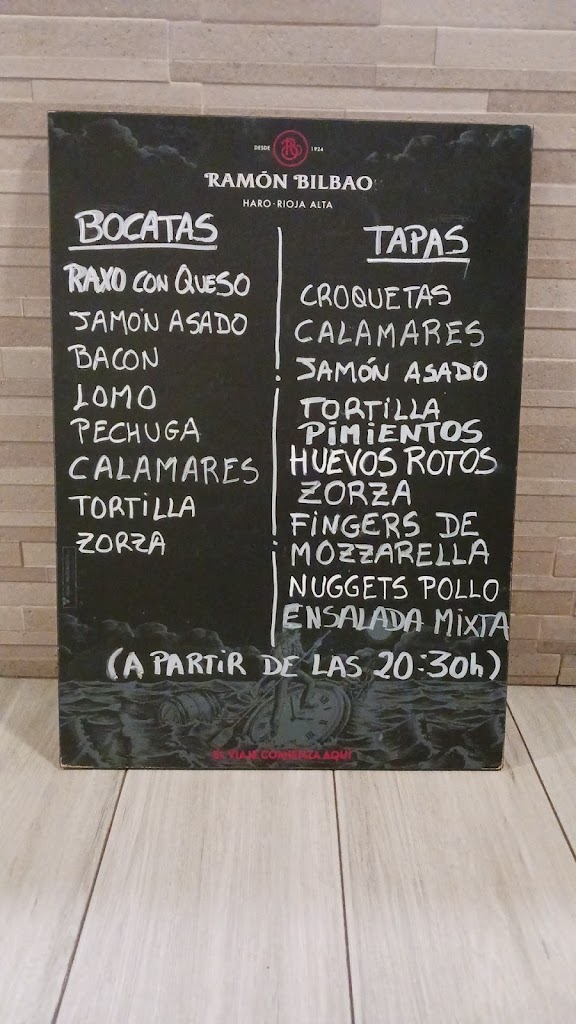 DESDE 1924
RAMÓN BILBAO
HARO-RIOJA ALTA
BOCATAS
RAXO CON QUESO
JAMÓN ASADO
BACON
LOMO
PECHUGA
CALAMARES
TORTILLA
ZORZA
TAPAS
CROQUETAS
CALAMARES
JAMÓN ASADO
TORTILLA
PIMIENTOS
HUEVOS ROTOS
ZORZA
FINGERS DE
MOZZARELLA
NUGGETS POLLO
ENSALADA MIXTA
(A PARTIR DE LAS 20:30h)
EL VIAJE COMIENZA AQUÍ